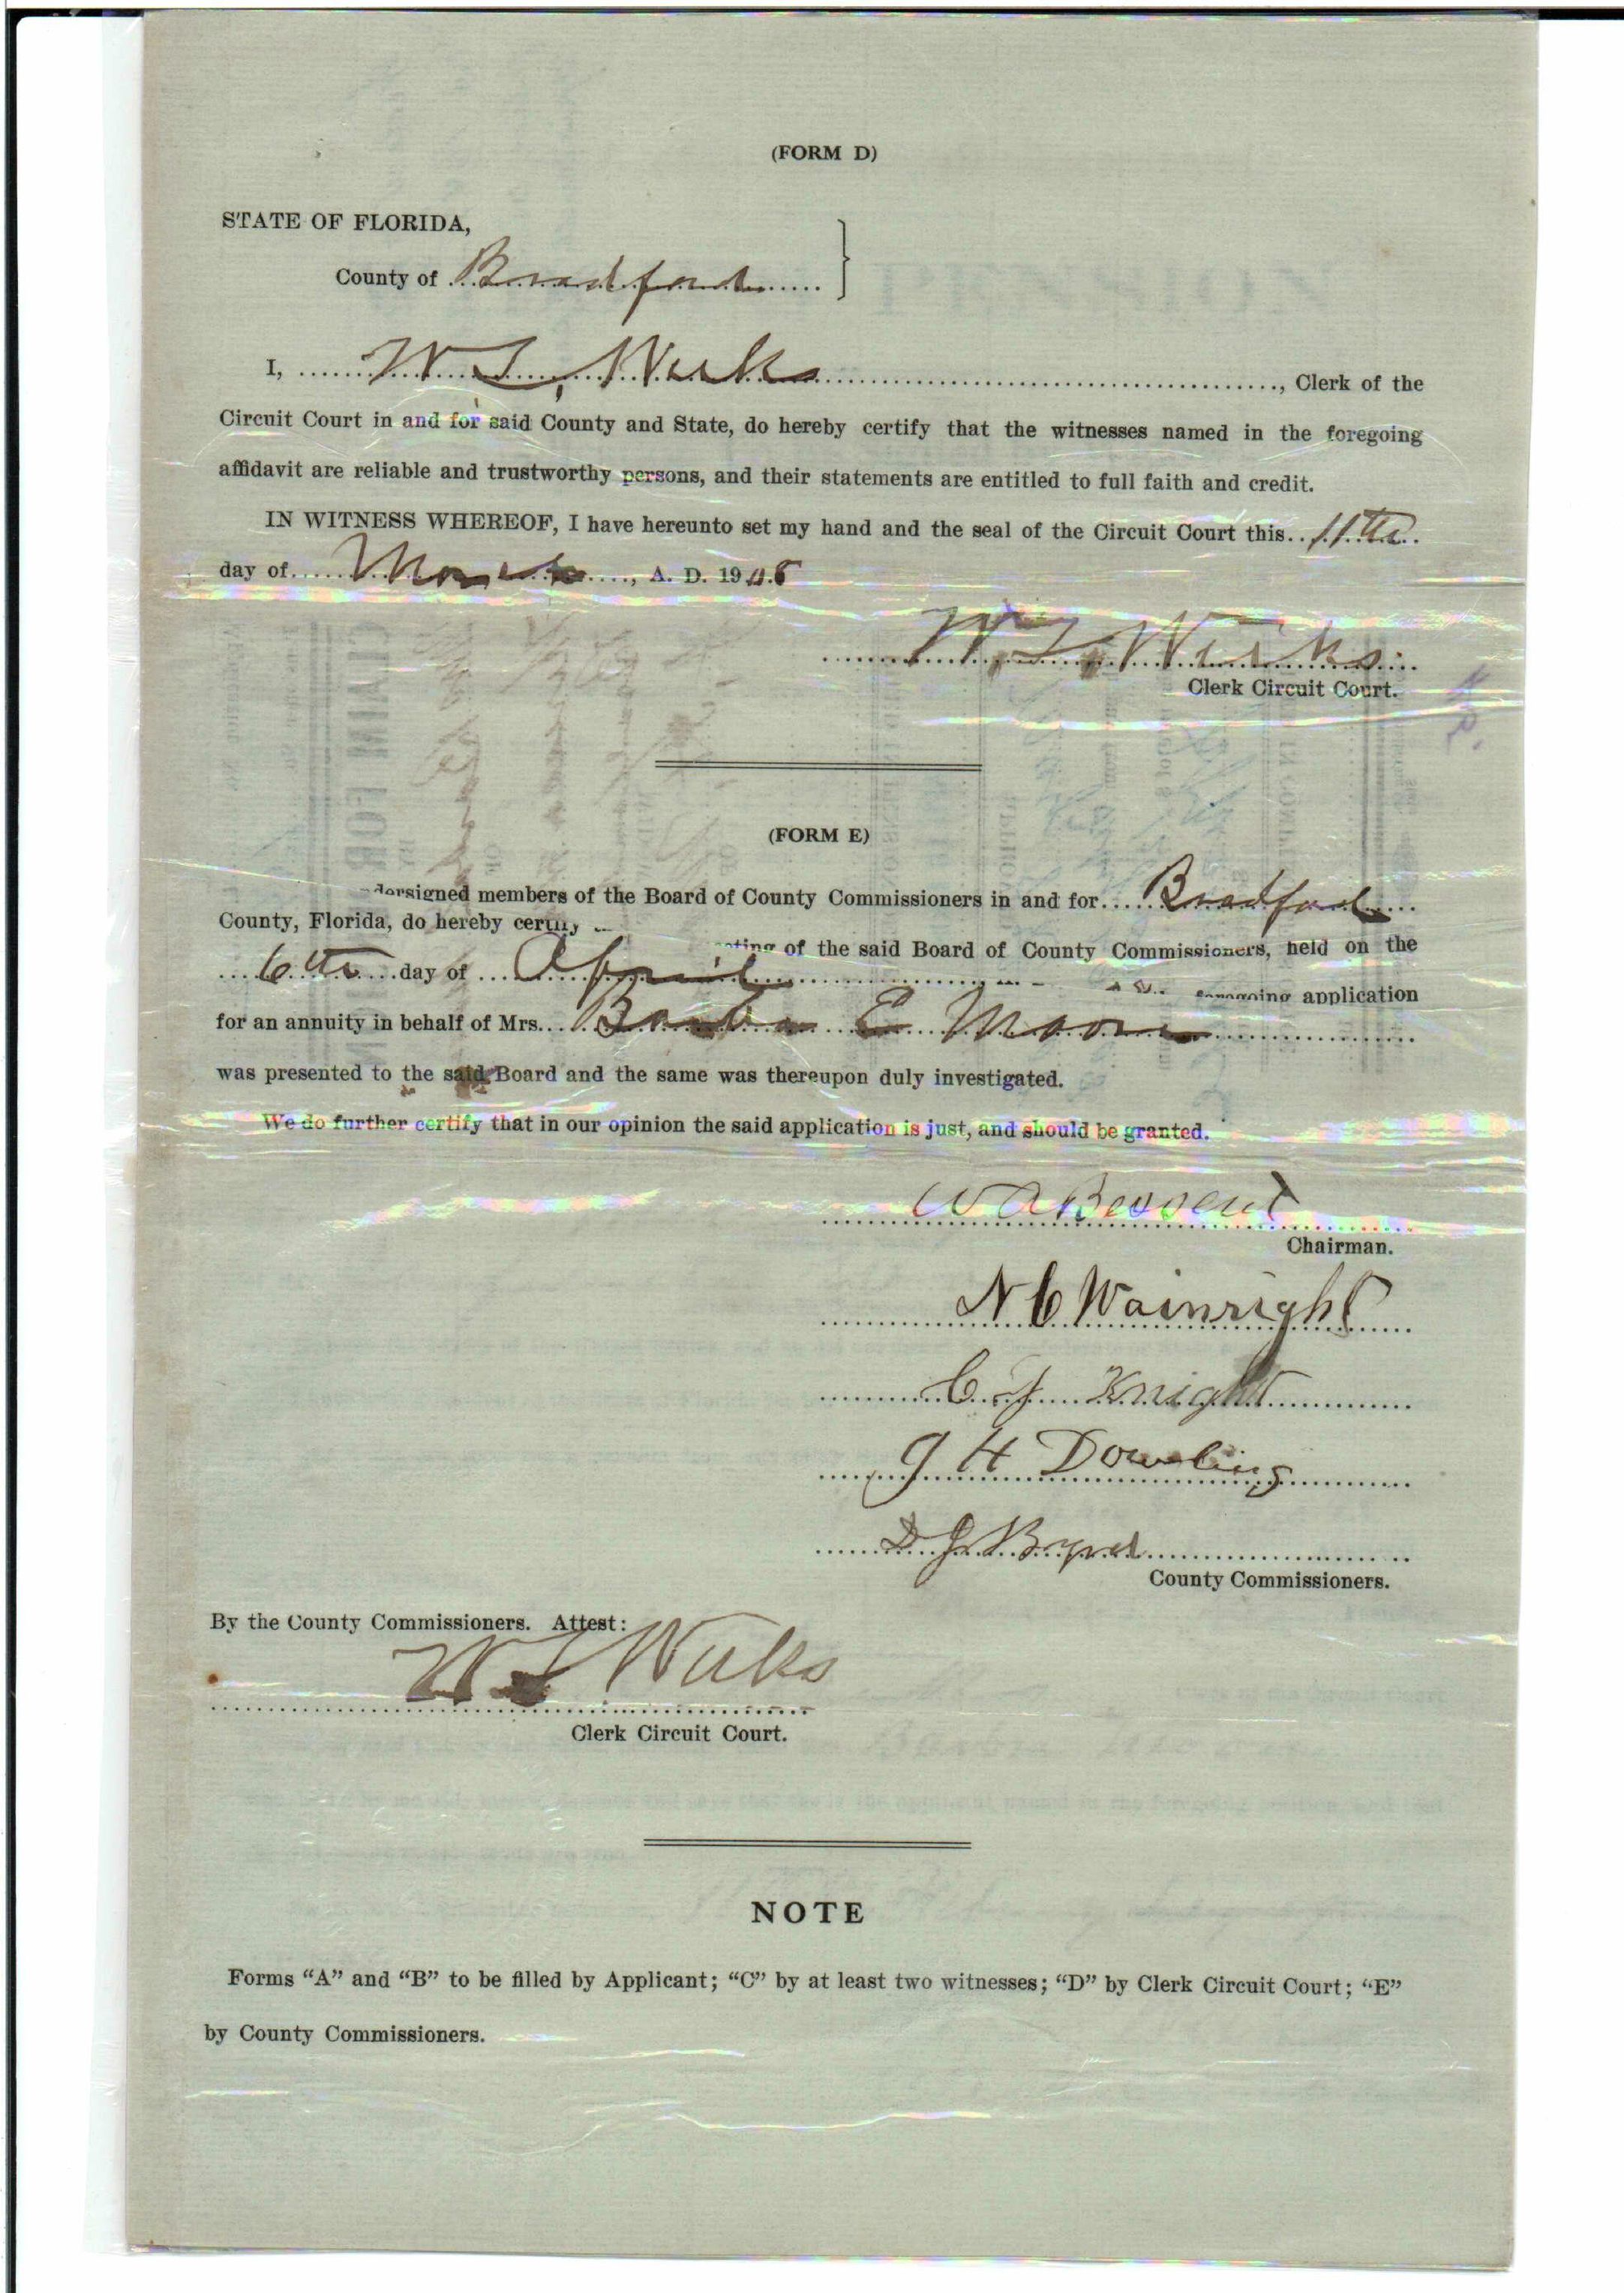 (FORM D)
STATE OF FLORIDA,
County of Bradford
I, W. T. Weeks, Clerk of the
Circuit Court in and for said County and State, do hereby certify that the witnesses named in the foregoing
affidavit are reliable and trustworthy persons, and their statements are entitled to full faith and credit.
IN WITNESS WHEREOF, I have hereunto set my hand and the seal of the Circuit Court this 11th
day of March, A. D. 1908
W. T. Weeks
Clerk Circuit Court.
(FORM E)
members of the Board of County Commissioners in and for Bradford
County, Florida, do hereby certify
of the said Board of County Commissioners, held on the
6th day of April foregoing application
for an annuity in behalf of Mrs. E Moore
was presented to the said Board and the same was thereupon duly investigated.
We do further certify that in our opinion the said application is just, and should be granted.
W A Bessent
Chairman.
N C Wainright
C J Knight
J H Dowling
D J Byrd
County Commissioners.
By the County Commissioners. Attest:
W T Weeks
Clerk Circuit Court.
NOTE
Forms “A” and “B” to be filled by Applicant; “C” by at least two witnesses; “D” by Clerk Circuit Court; “E”
by County Commissioners.